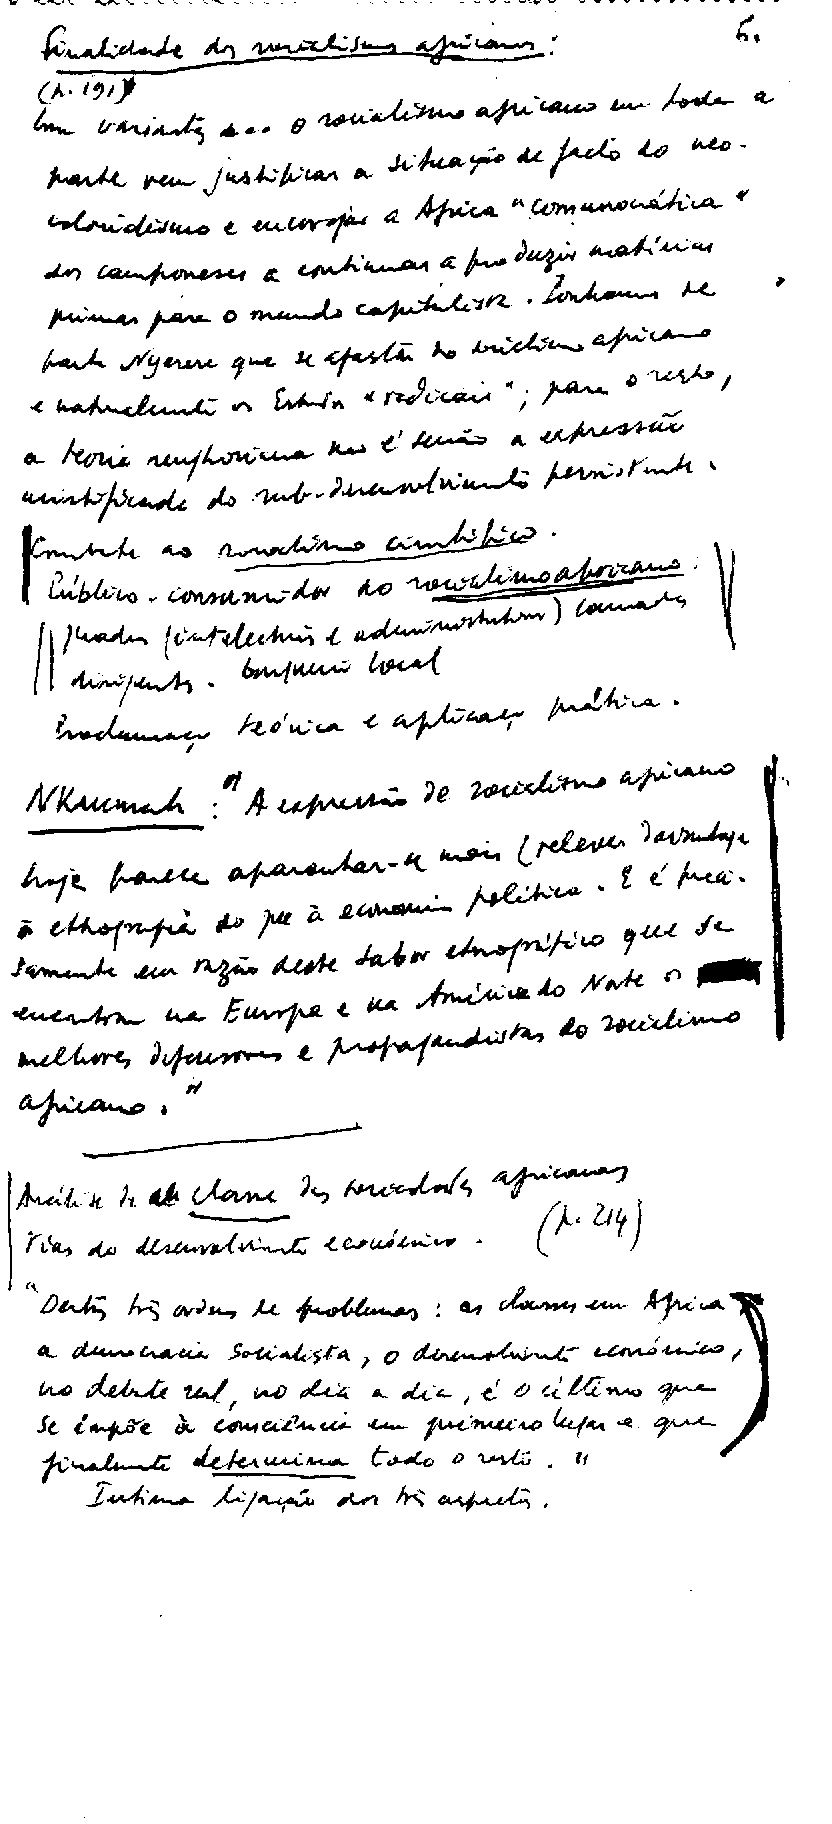 Finalidade dos socialismos africanos: 6.
(p. 191)
Com variantes ... o socialismo africano em toda a
parte vem justificar a situação de facto do neo-
colonialismo e encorajar a África "comunocrática"
dos camponeses a continuar a produzir matérias
primas para o mundo capitalista. Ponhamos de
parte Nyerere que se afasta do socialismo africano
e naturalmente os Estados "radicais"; para o resto,
a teoria senghoriana não é senão a expressão
mistificada do sub-desenvolvimento persistente.
Combate ao socialismo científico.
Público-consumidor do socialismo africano:
Quadros (intelectuais e administrativos) camadas
dirigentes. Burguesia local
Proclamação teórica e aplicação prática.
NKrumah: "A expressão de socialismo africano
hoje parece aparentar-se mais (relever davantage
à etnografia do que à economia política. E é preci-
samente em razão deste sabor etnográfico que se
encontram na Europa e na América do Norte os
melhores difusores e propagandistas do socialismo
africano."
Análise de classe das sociedades africanas
Vias do desenvolvimento económico. (p. 214)
"Destas três ordens de problemas: as classes em África
a democracia socialista, o desenvolvimento económico,
no debate real, no dia a dia, é o último que
se impõe à consciência em primeiro lugar e que
finalmente determina todo o resto."
Íntima ligação dos três aspectos.